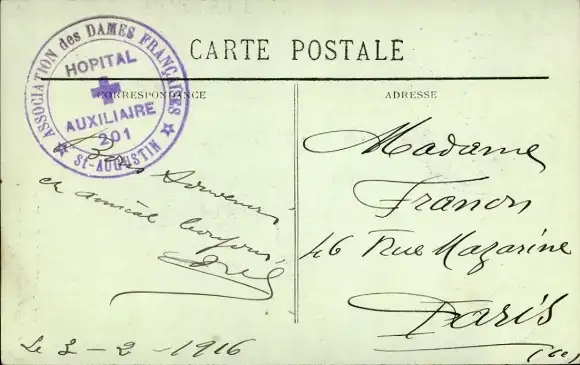 CARTE POSTALE
ASSOCIATION des DAMES FRANÇAISES
HOPITAL
AUXILIAIRE
201
St-AUGUSTIN
CORRESPONDANCE
Bon Souvenir
et amical bonjour
Le 3-2-1916
ADRESSE
Madame
Franon
46 Rue Mazarine
Paris